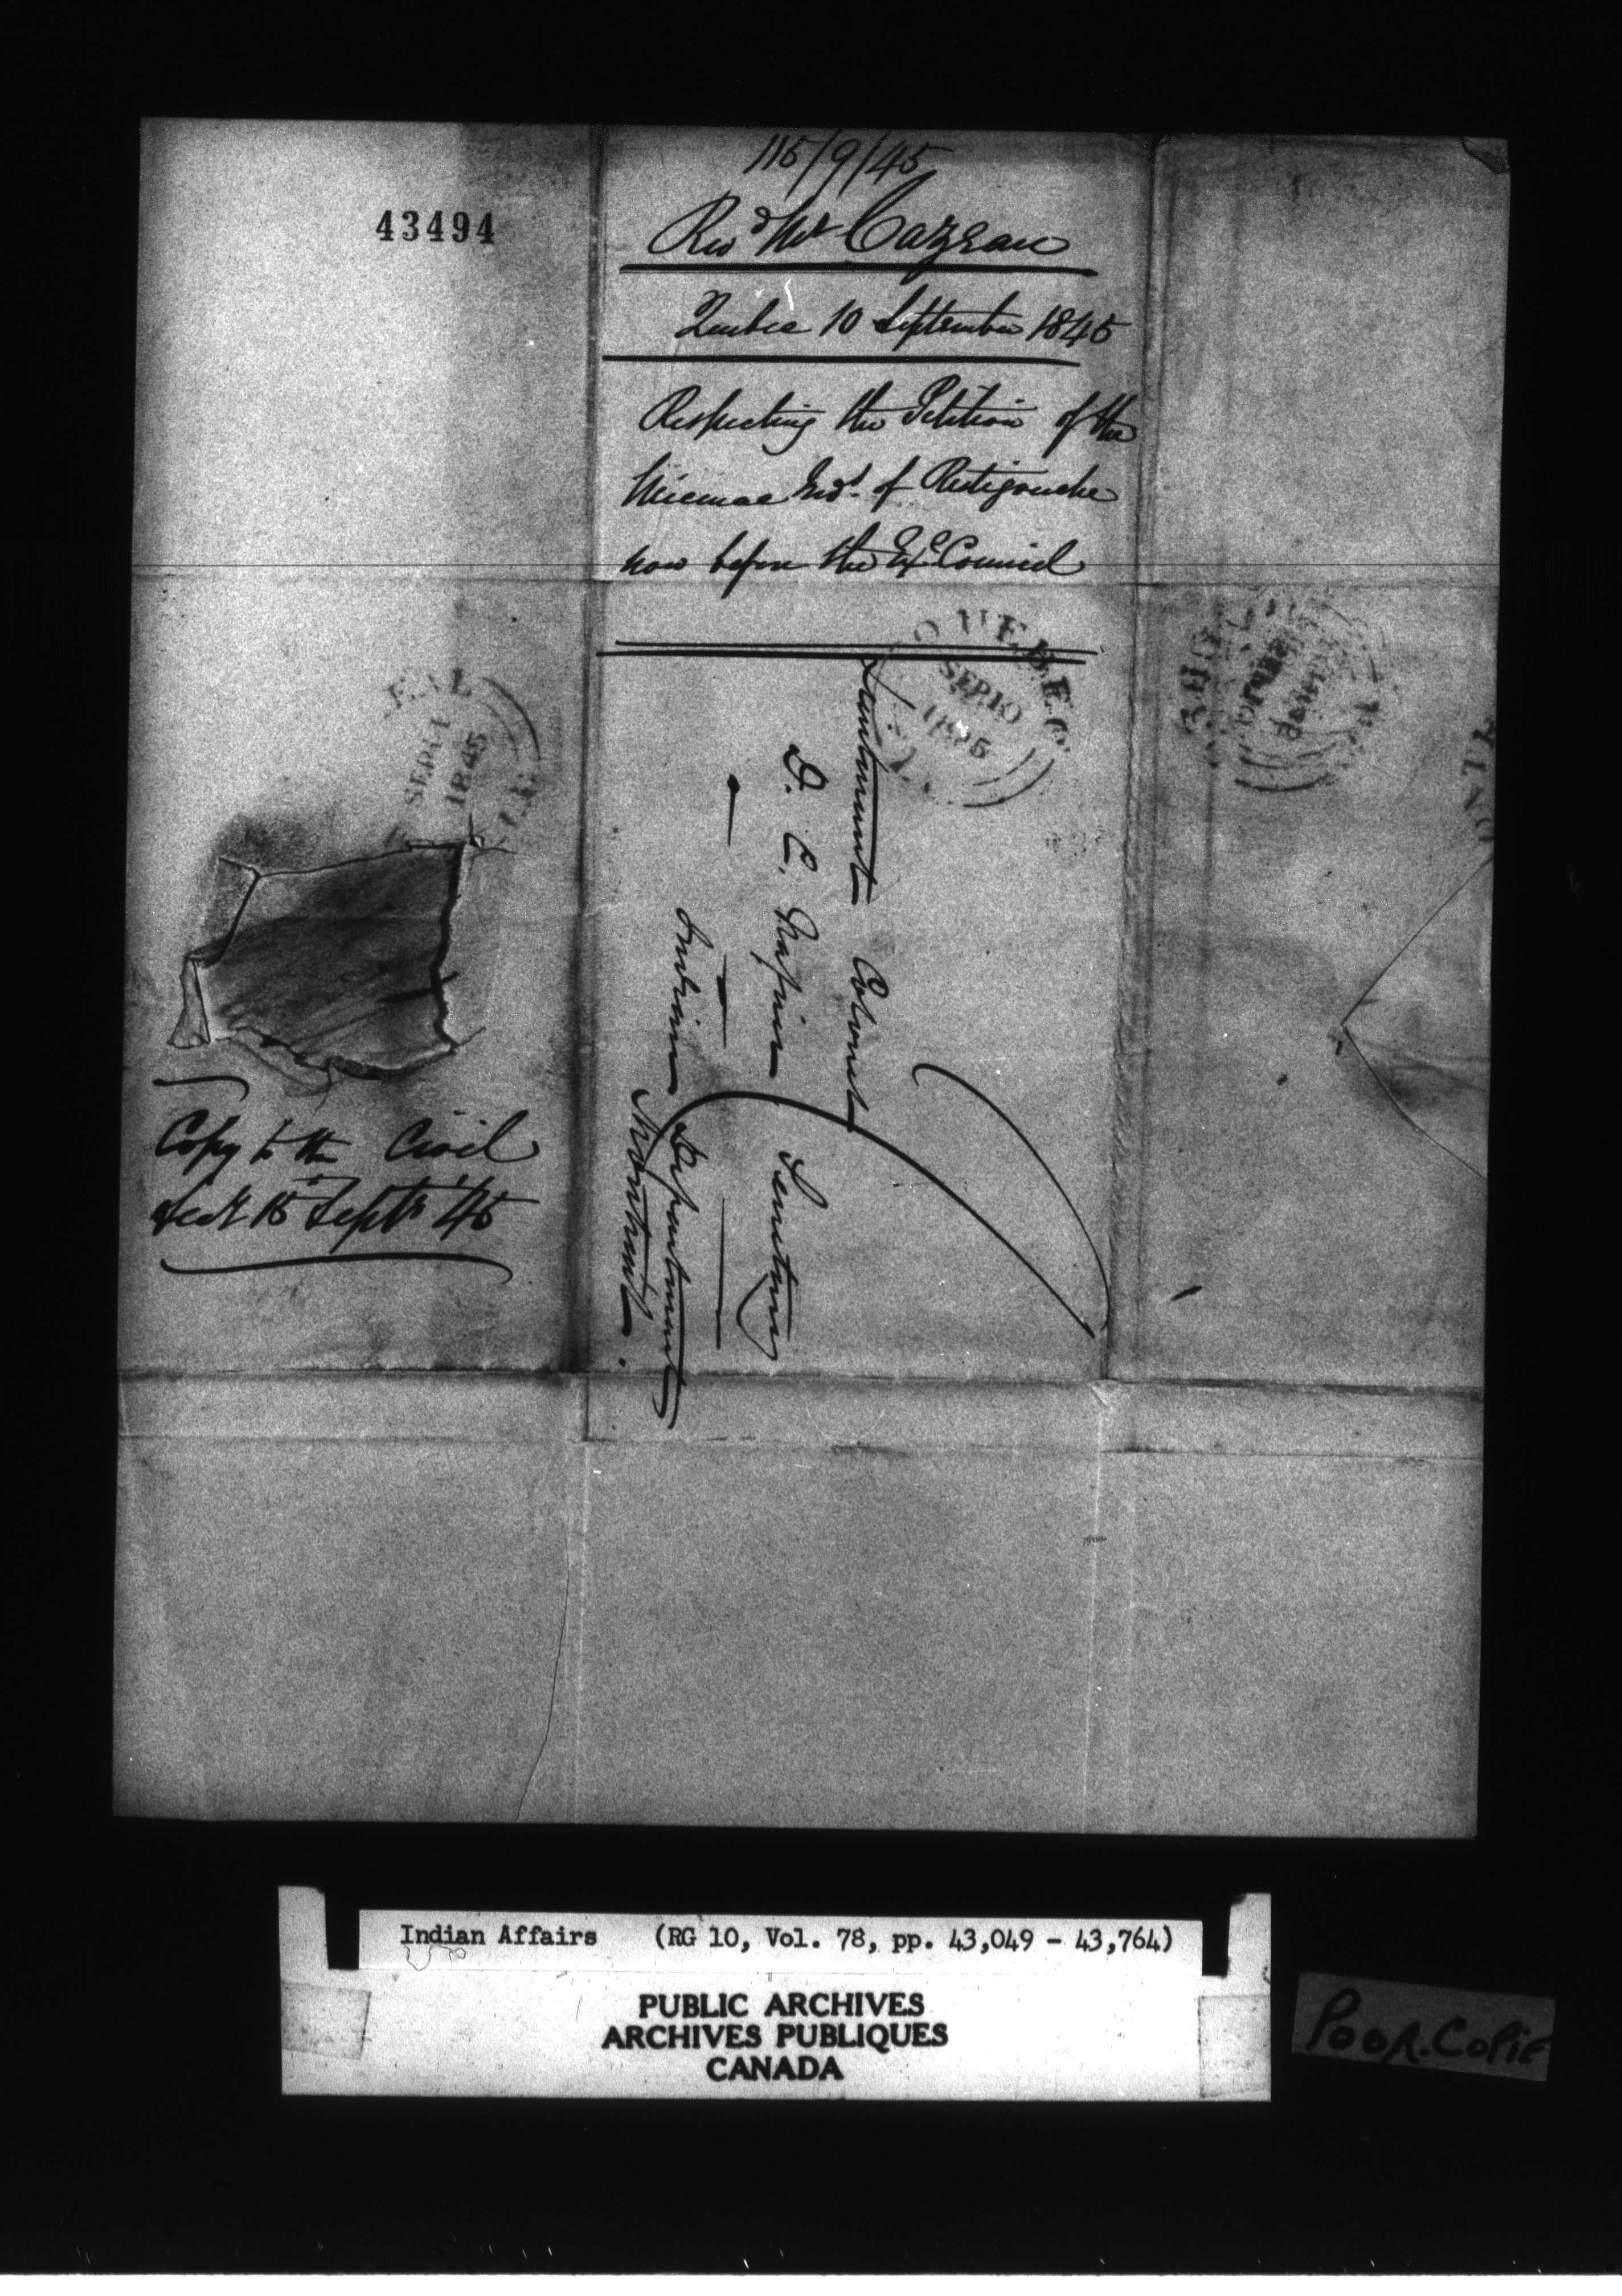 43494
115/9/45
Revd Mr Cazeau
Quebec 10 September 1845
Respecting the Petition of the
Micmac Inds. of Restigouche
now before the Exe Council
QUEBEC
SEP 10
1845
EAL
SEP 11
1845
Lieutenant Colonel
D. C. Napier Secretary
Indian Department
Montreal.
Copy to the Civil
Secy 15th Septr '45
Indian Affairs (RG 10, Vol. 78, pp. 43,049 - 43,764)
PUBLIC ARCHIVES
ARCHIVES PUBLIQUES
CANADA
POOR.COPIE